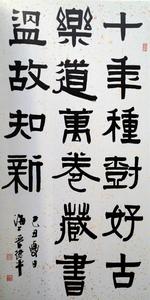 十年種樹好古
樂道萬卷藏書
溫故知新
己丑夏日